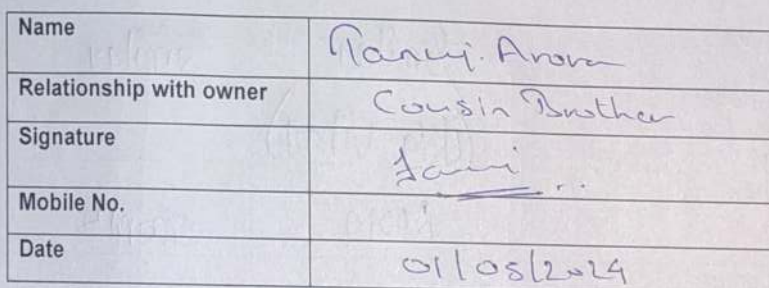 Name Tanuj. Arora
Relationship with owner Cousin Brother
Signature
Mobile No.
Date 01/05/2024